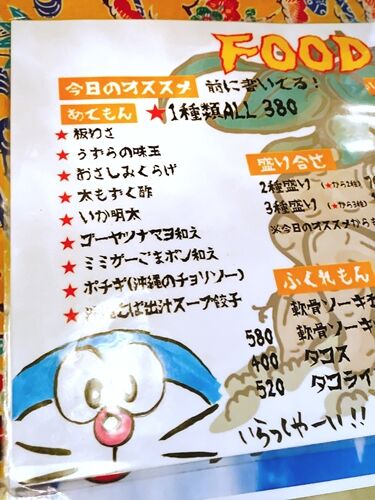 FOOD
今日のオススメ 前に書いてる!
あてもん ★1種類ALL 380
★板わさ
★うずらの味玉
★おさしみくらげ
★太もずく酢
★いか明太
★ゴーヤツナマヨ和え
★ミミガーごまポン和え
★ポチギ(沖縄のチョリソー)
★ そば出汁スープ餃子
盛り合せ
2種盛り (★から2種)
3種盛り (★から3種)
※今日のオススメから
ふくれもん
軟骨ソーキ
580 軟骨ソーキ
400 タコス
520 タコライ
いらっくやーい!!